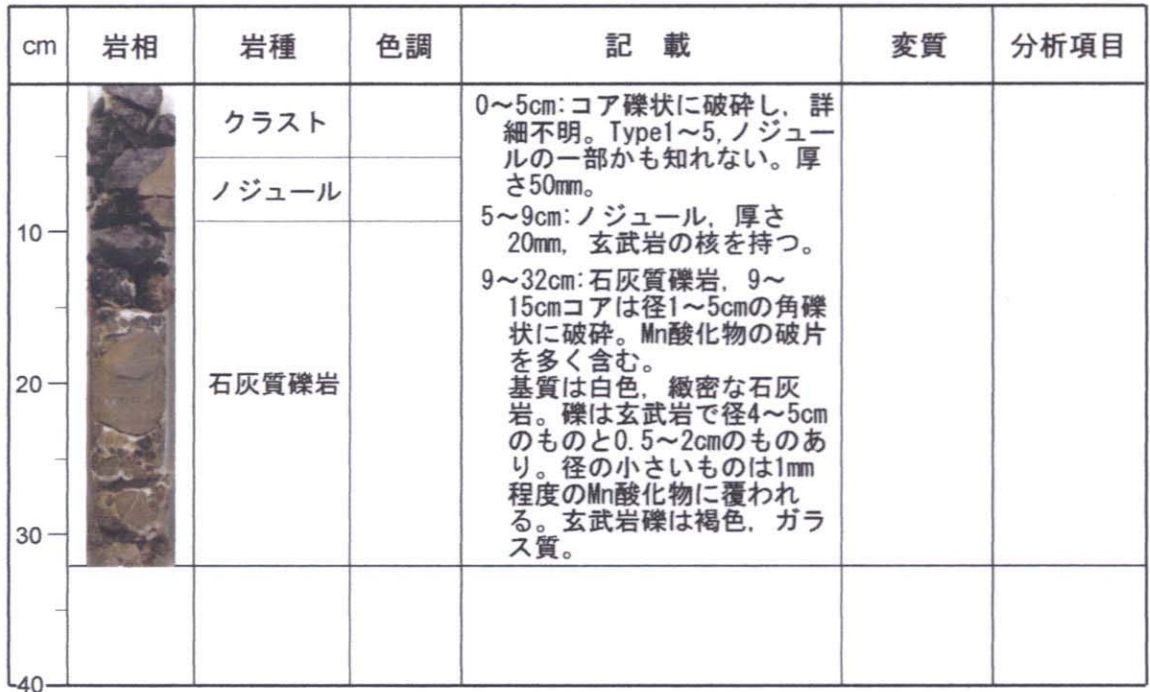 cm 岩相 岩種 色調 記 載 変質 分析項目
クラスト
ノジュール
石灰質礫岩
0～5cm:コア礫状に破砕し，詳
細不明。Type1～5,ノジュー
ルの一部かも知れない。厚
さ50mm。
5～9cm:ノジュール，厚さ
20mm，玄武岩の核を持つ。
9～32cm:石灰質礫岩，9～
15cmコアは径1～5cmの角礫
状に破砕。Mn酸化物の破片
を多く含む。
基質は白色，緻密な石灰
岩。礫は玄武岩で径4～5cm
のものと0.5～2cmのものあ
り。径の小さいものは1mm
程度のMn酸化物に覆われ
る。玄武岩礫は褐色，ガラ
ス質。
10
20
30
40